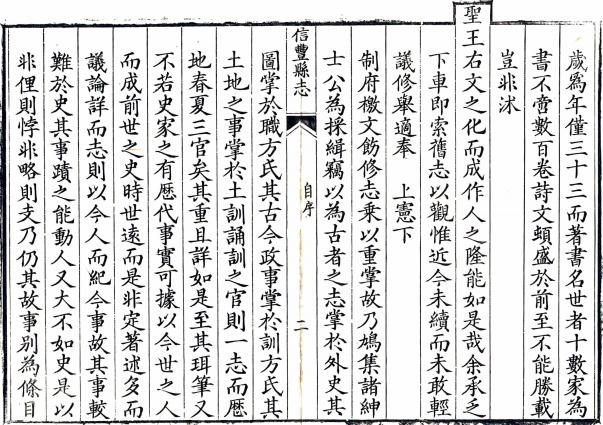 歲爲年僅三十三而著書名世者十數家為
書不啻數百卷詩文頓盛於前至不能勝載
豈非沭
聖王右文之化而成作人之隆能如是哉余承乏
下車即索舊志以觀惟近今未續而未敢輕
議修舉適奉　上憲下
制府檄文飭修志乘以重掌故乃鳩集諸紳
士公為採緝竊以為古者之志掌於外史其
信豐縣志
自序
二
圖掌於職方氏其古今政事掌於訓方氏其
土地之事掌於土訓誦訓之官則一志而歷
地春夏三官矣其重且詳如是至其珥筆又
不若史家之有歷代事實可據以今世之人
而成前世之史時世遠而是非定著述多而
議論詳而志則以今人而紀今事故其事較
難於史其事蹟之能動人又大不如史是以
非俚則悖非略則支乃仍其故事別為條目